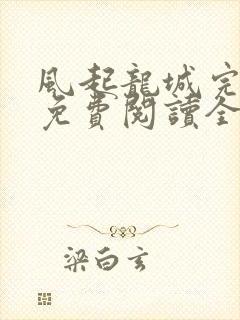 風起龍城完
免費閱讀全
梁白玄